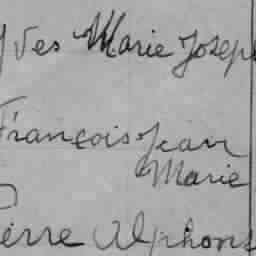 Yves Marie Joseph
François Jean
Marie
Pierre Alphons